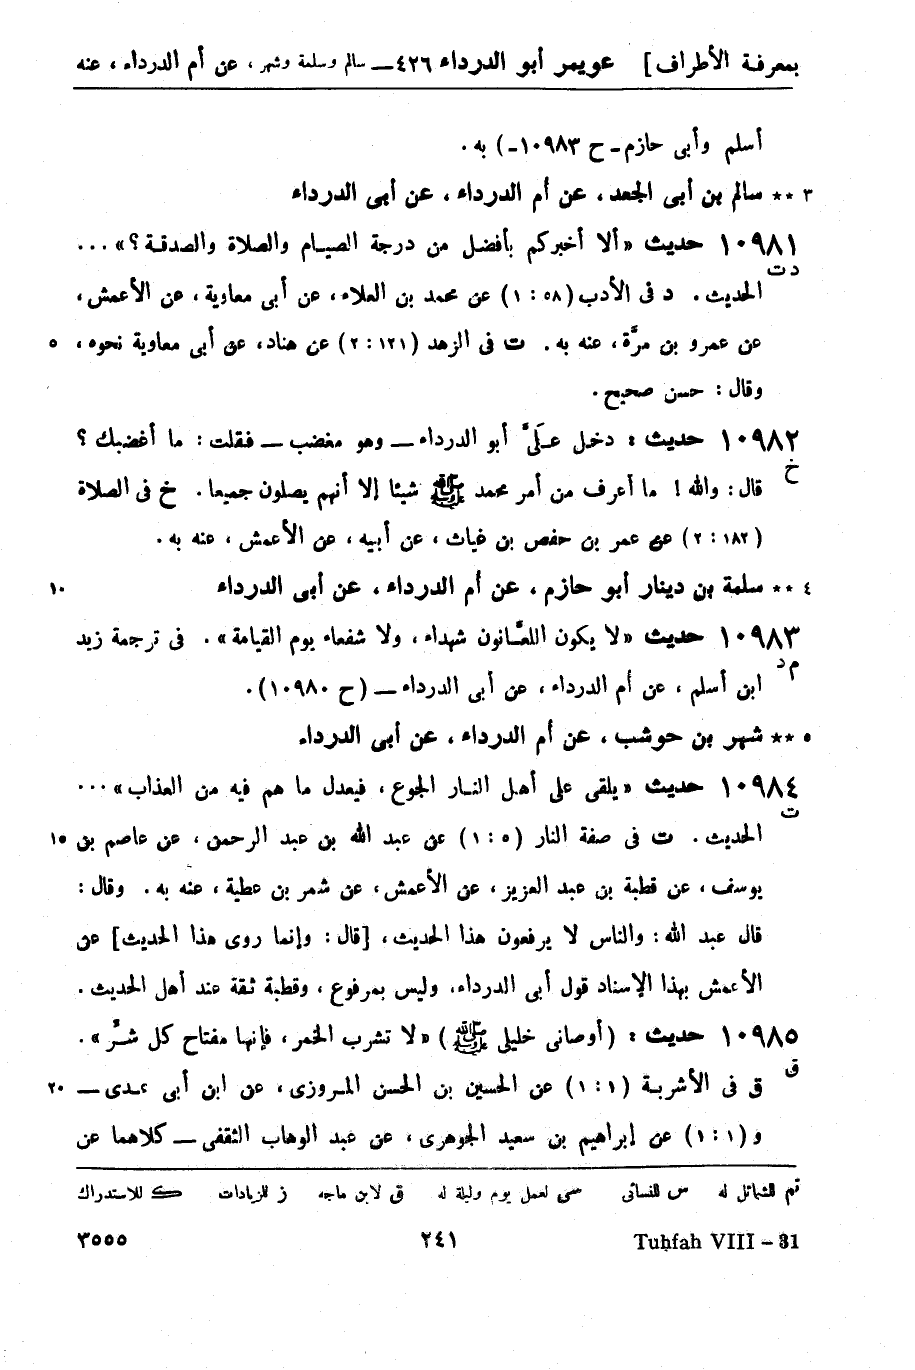 بمعرفة الأطراف] عويمر أبو الدرداء ٤٢٦ــ سالم وسلمة وشهر، عن أم الدرداء، عنه
أسلم وأبى حازم ــ ح ١٠٩٨٣ـ) به.
٣ ** سالم بن أبى الجعد، عن أم الدرداء، عن أبى الدرداء
١٠٩٨١ حديث «ألا أخبركم بأفضل من درجة الصيام والصلاة والصدقة؟» ...
د ت
الحديث. د فى الأدب (٥٨ : ١) عن محمد بن العلاء، عن أبى معاوية، عن الأعمش،
عن عمرو بن مرَّة، عنه به. ت فى الزهد (١٢١ : ٢) عن هناد، عن أبى معاوية نحوه، ٥
وقال: حسن صحيح.
١٠٩٨٢ حديث: دخل عـلَىَّ أبو الدرداء ــ وهو مغضب ــ فقلت: ما أغضبك؟
خ
قال: والله! ما أعرف من أمر محمد ﷺ شيئا إلا أنهم يصلون جميعا. خ فى الصلاة
(١٨٢ : ٢) عن عمر بن حفص بن غياث، عن أبيه، عن الأعمش، عنه به.
٤ ** سلمة بن دينار أبو حازم، عن أم الدرداء، عن أبى الدرداء ١٠
١٠٩٨٣ حديث «لا يكون اللعَّانون شهداء، ولا شفعاء يوم القيامة». فى ترجمة زيد
م د
ابن أسلم، عن أم الدرداء، عن أبى الدرداء ــ (ح ١٠٩٨٠).
٥ ** شهر بن حوشب، عن أم الدرداء، عن أبى الدرداء
١٠٩٨٤ حديث «يلقى على أهل النار الجوع، فيعدل ما هم فيه من العذاب» ...
ت
الحديث. ت فى صفة النار (٥ : ١) عن عبد الله بن عبد الرحمن، عن عاصم بن ١٥
يوسف، عن قطبة بن عبد العزيز، عن الأعمش، عن شمر بن عطية، عنه به. وقال:
قال عبد الله: والناس لا يرفعون هذا الحديث، [قال: وإنما روى هذا الحديث] عن
الأعمش بهذا الإسناد قول أبى الدرداء، وليس بمرفوع، وقطبة ثقة عند أهل الحديث.
١٠٩٨٥ حديث: (أوصانى خليلى ﷺ) «لا تشرب الخمر، فإنها مفتاح كل شرٍّ».
ق
ق فى الأشربة (١ : ١) عن الحسين بن الحسن المروزى، عن ابن أبى عدى ــ ٢٠
و (١ : ١) عن إبراهيم بن سعيد الجوهرى، عن عبد الوهاب الثقفى ــ كلاهما عن
تم للشمائل له س للنسائى سى لعمل يوم وليلة له ق لابن ماجه ز للزيادات ك للاستدراك
Tuḥfah VIII – 31 ٢٤١ ٣٥٥٥